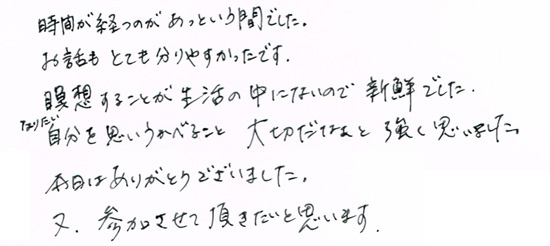 時間が経つのがあっという間でした。
お話もとても分りやすかったです.
瞑想することが生活の中にないので新鮮でした.
なりたい自分を思いうかべること 大切だなぁと強く思いました。
本日はありがとうございました。
又、参加させて頂きたいと思います.